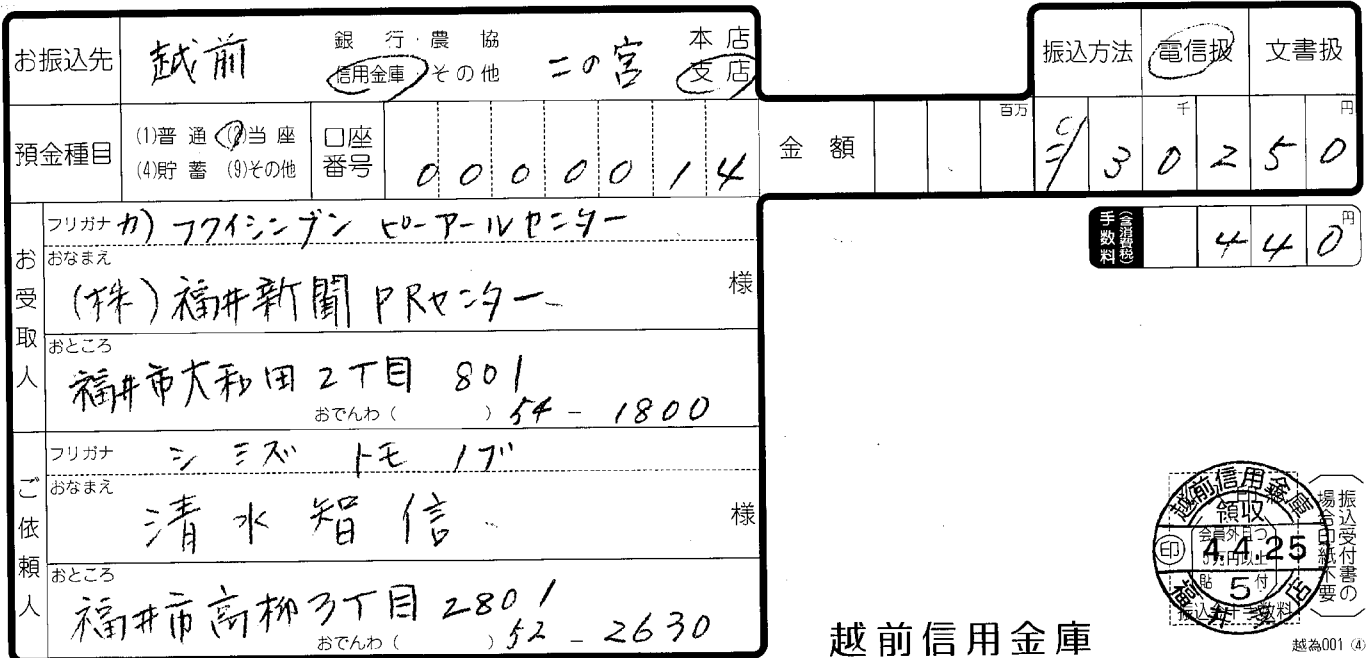 お振込先 越前 銀行・農協 信用金庫・その他 二の宮 本店 支店
振込方法 電信扱 文書扱
預金種目 (1)普通 (2)当座 (4)貯蓄 (9)その他 口座番号 0000014 金額 百万 千 円 ¥30250
手数料 (含消費税) 440円
お受取人
フリガナ カ) フクイシンブン ピーアールセンター
おなまえ
(株)福井新聞PRセンター 様
おところ
福井市大和田2丁目 801
おでんわ ( ) 54-1800
ご依頼人
フリガナ シミズ トモノブ
おなまえ
清水智信 様
おところ
福井市高柳3丁目2801
おでんわ ( ) 52-2630
越前信用金庫
領収
印 4.4.25
5
振込受付書の場合印紙不要
越前信用金庫
越為001 ④